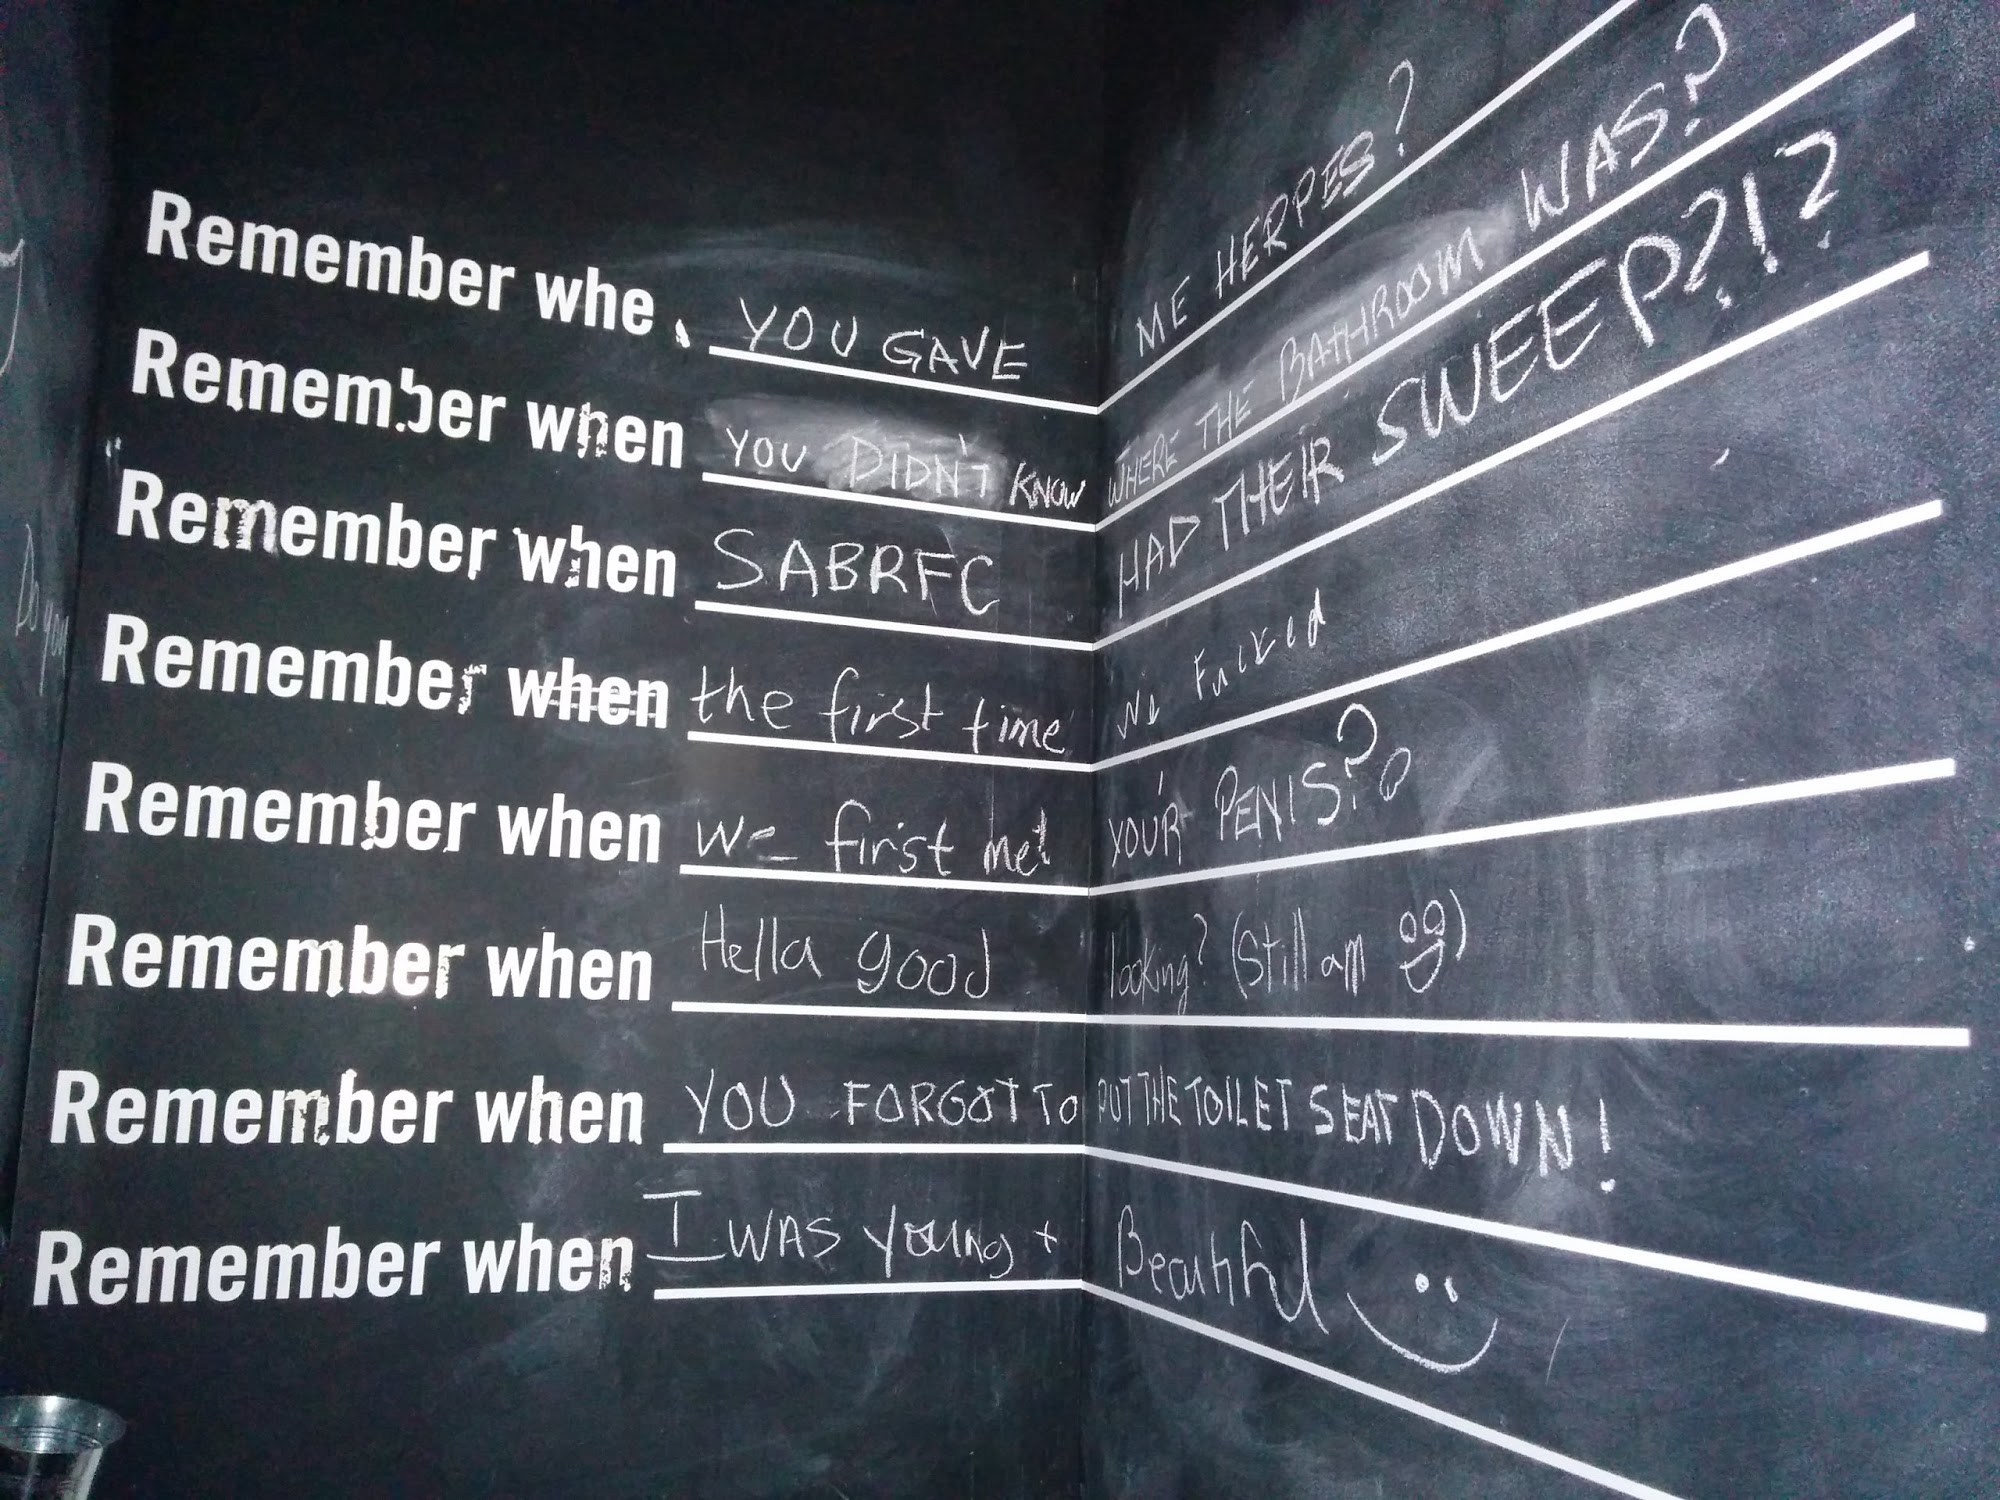 Remember whe YOU GAVE ME HERPES?
Remember when YOU DIDN'T KNOW WHERE THE BATHROOM WAS?
Remember when SABRFC HAD THEIR SWEEP?!?
Remember when the first time we Fucked
Remember when we first met YOUR PENIS?
Remember when Hella good looking? (Still am)
Remember when YOU FORGOT TO PUT THE TOILET SEAT DOWN!
Remember when I WAS YOUNG + Beautiful
Do you